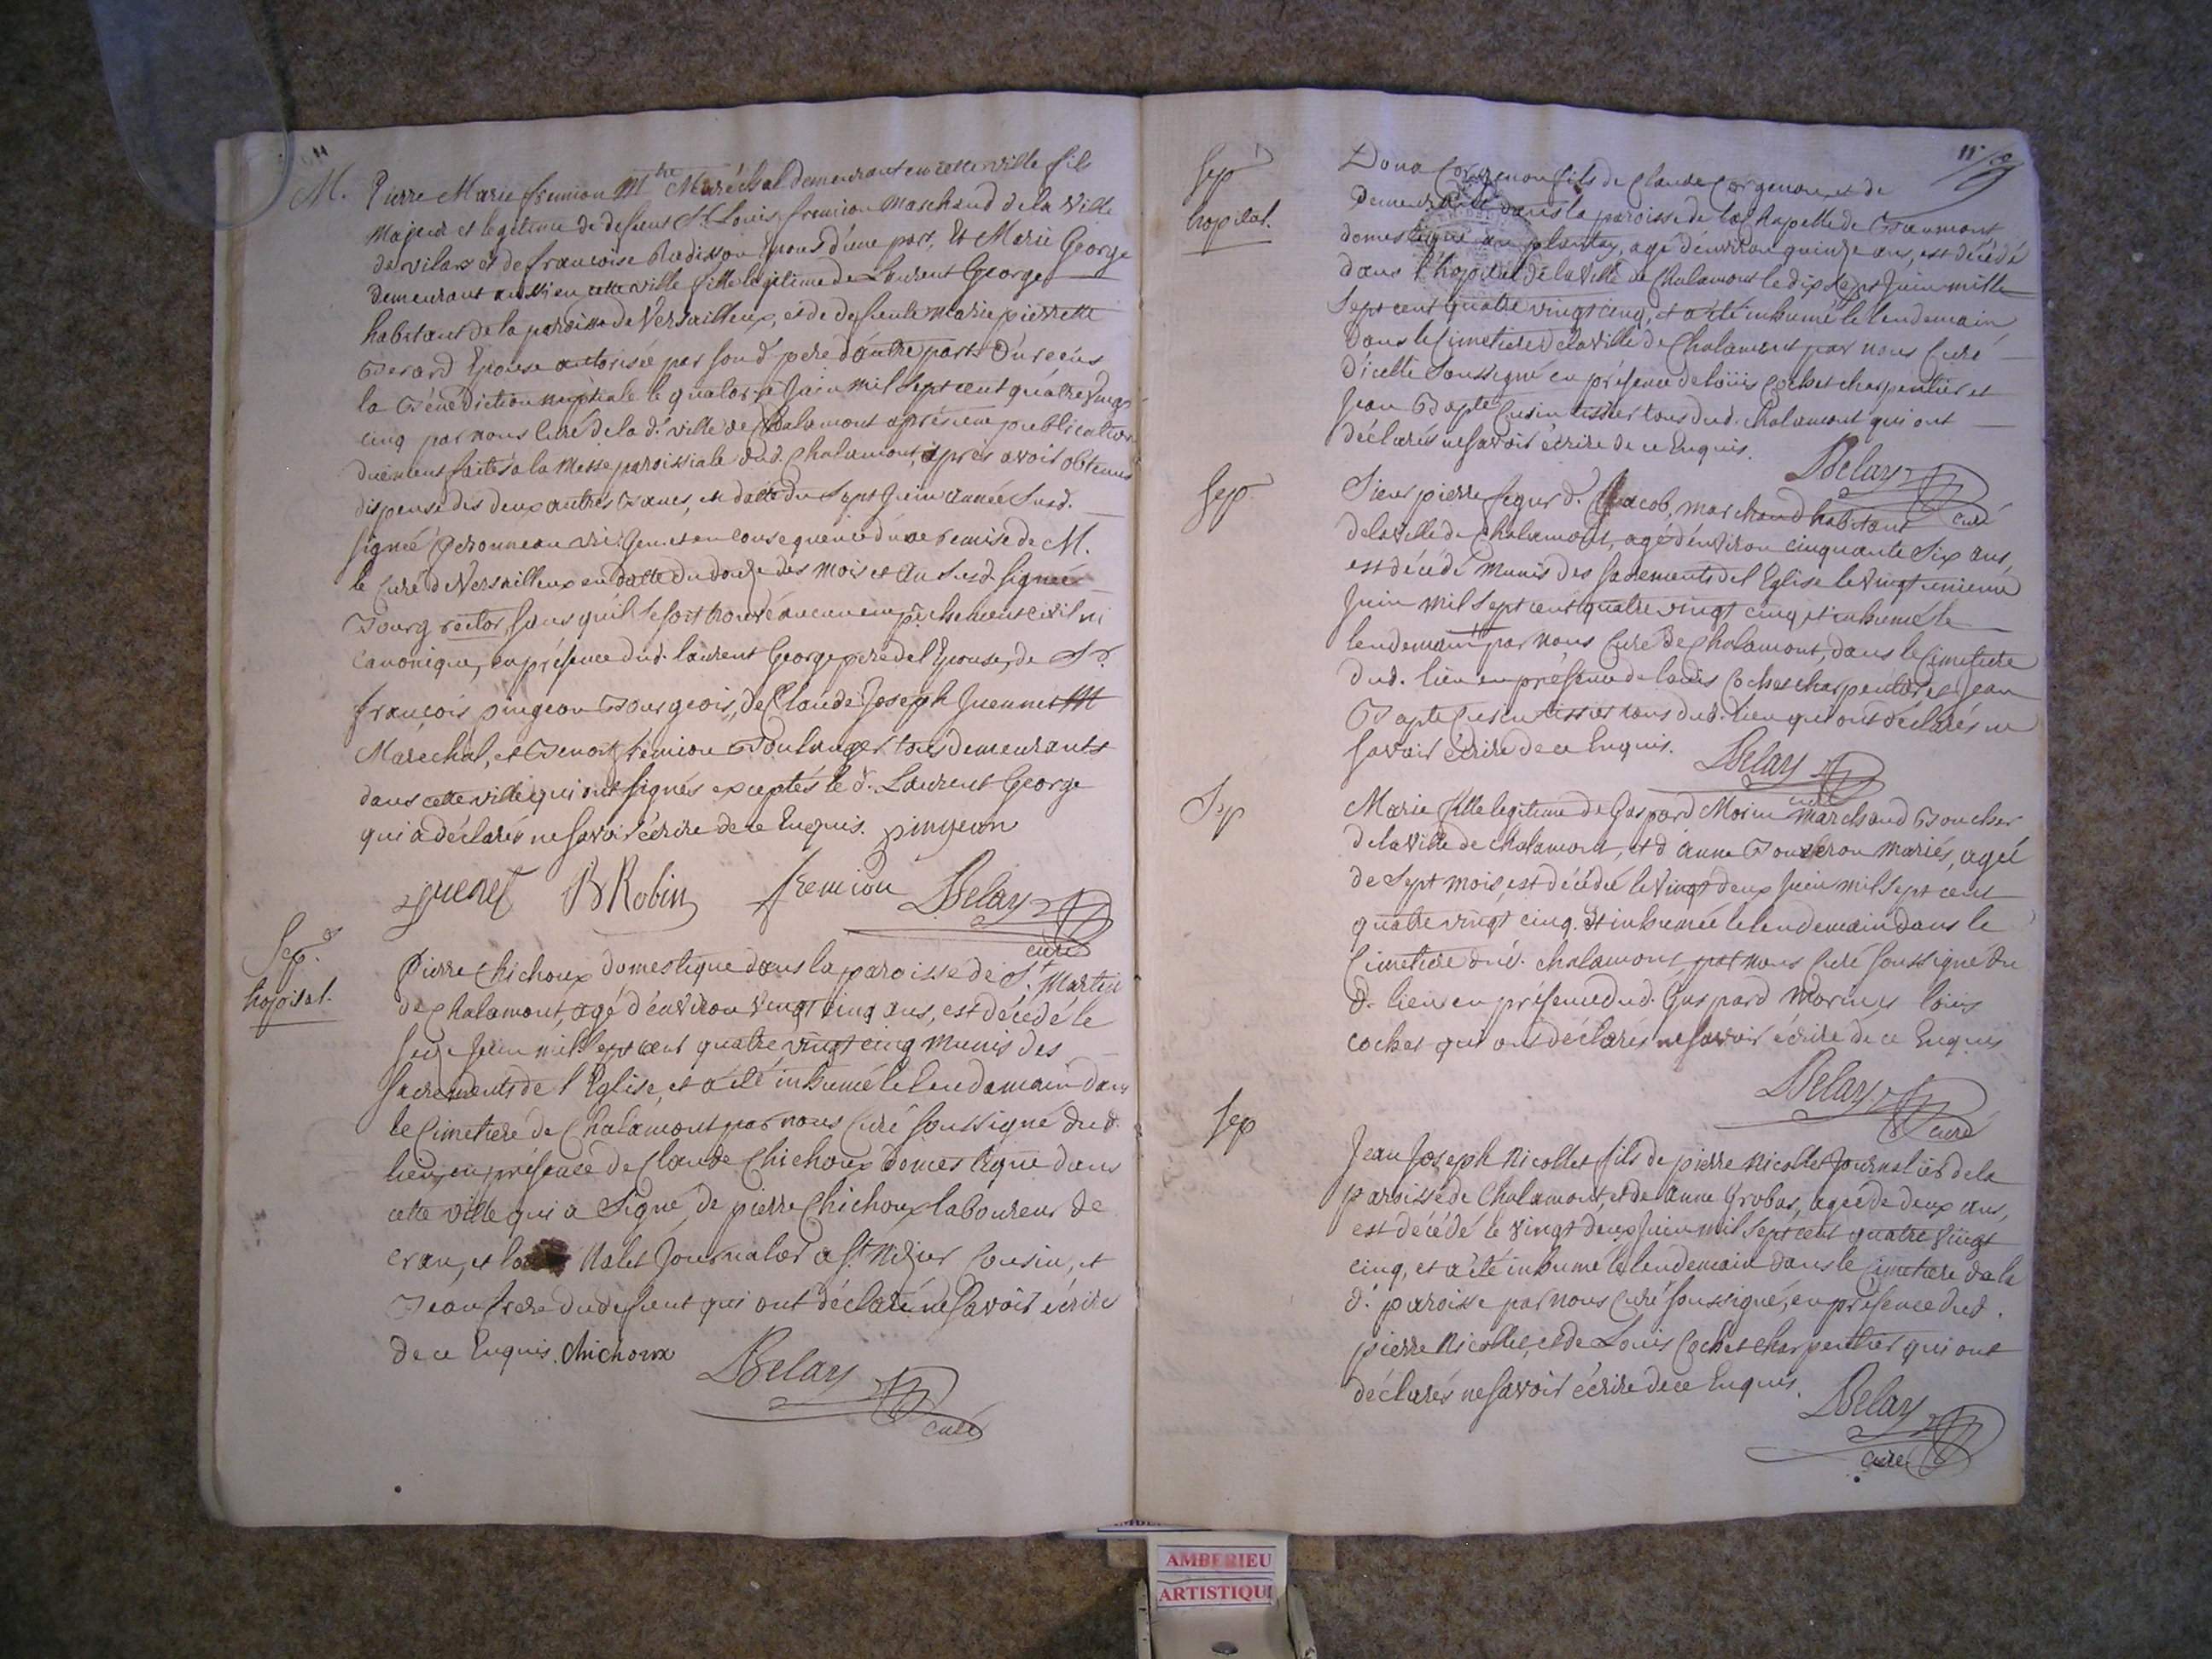 M. Pierre Marie fremion Mtre Maréchal demeurant en cette ville fils
Majeur et legitime de defient Sr. Louis fremion Marchand de la Ville
de vilars et de francoise Radisson Epous d'une part, Et Marie George
demeurant aussi en cette ville fille legitime de Laurent George
habitant de la paroisse de Versailleux, et de defiente Marie pierrette
Berard Epouse autorisée par son d. pere d'autre part. Ont reçus
la Bénédiction nuptiale le quatorze Juin mil sept cent quatre vingt
cinq par nous Curé de la d. ville de Chalamont après une publication
duëment faites a la Messe paroissiale dud. Chalamont, après avoir obtenus
dispense des deux autres Bancs, en datte du Sept Juin année Susd.
signée vic: gen. et en consequence d'une remise de M.
le Curé de Versailleux en datte du douze des mois et an Susd. signée
Bourg rector, sans qu'il se soit trouvé aucun empêchement civil ni
canonique, en présence dud. laurent George pere de l'Epouse, de Sr.
françois pingeon Bourgeois, de Claude Joseph Juennet M
Maréchal, et Benoit fremion Boulanger tous demeurants
dans cette ville qui ont signés exceptés le d. Laurent George
qui a déclarés ne savoir écrire de ce Enquis. pingeon
Juenet B Robin fremion Belay
curé
Sep.
hopital.
Pierre Chichoux domestique dans la paroisse de St. Martin
de Chalamont, agé d'environ vingt cinq ans, est décédé le
seize Juin mil sept cent quatre vingt cinq munis des
sacrements de l'Eglise, et a été inhumé le lendemain dans
le Cimetiere de Chalamont par nous Curé soussigné dud.
lieu, en présence de Claude Chichoux domestique dans
cette ville qui a signé, de pierre Chichoux laboureur de
cran, et Malet Journalier a St. Nizier Cousin, et
Jean frere du defient qui ont déclaré ne savoir écrire
de ce Enquis. Chichoux Belay
curé
11
Sep
hopital.
Dona Corgenon fils de Claude Corgenon et de
demeurant dans la paroisse de la Chapelle de
domestique au plantay, agé d'environ quinze ans, est décédé
dans l'hopital de la Ville de Chalamont le dix sept Juin mille
Sept cent quatre vingt cinq, et a été inhumé le lendemain
dans le Cimetiere de la ville de Chalamont par nous Curé
d'icelle soussigné en présence de loüis Cochet charpentier et
Jean Bapte Cusin tissier tous dud. Chalamont qui ont
déclarés ne savoir écrire de ce Enquis.
Belay
curé
Sep.
Sieur pierre Segur d. Jacob, marchand habitant
de la Ville de Chalamont, agé d'environ cinquante six ans,
est décédé munis des sacrements de l'Eglise le vingt unieme
Juin mil sept cent quatre vingt cinq et inhumé le
lendemain par nous Curé de Chalamont, dans le Cimetiere
dud. lieu en présence de louis Cochet charpentier et Jean
Bapte Cusin tissier tous dud. lieu qui ont déclarés ne
savoir écrire de ce Enquis. Belay
curé
Sep
Marie fille legitime de Gaspard Morin Marchand Boucher
de la Ville de Chalamont, et d'anne mariés, agée
de sept mois, est décédée le vingt deux Juin mil sept cent
quatre vingt cinq. Et inhumée le lendemain dans le
Cimetiere dud. Chalamont, par nous Curé soussigné du
d. lieu en présence dud. Gaspard Morin et loüis
cochet qui ont déclarés ne savoir écrire de ce Enquis
Belay
curé
Sep
Jean Joseph Nicollet fils de pierre Nicollet Journalier de la
paroisse de Chalamont, et de Anne Grobas, agée de deux ans,
est décédé le vingt deux Juin mil sept cent quatre vingt
cinq, et a été inhumé le lendemain dans le Cimetiere de la
d. paroisse par nous Curé soussigné, en présence dud.
pierre Nicollet, et de Louis Cochet charpentier qui ont
déclarés ne savoir écrire de ce Enquis.
Belay
curé
AMBERIEU
ARTISTIQU